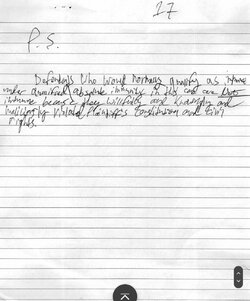 17
P.S.
Defendants who would normally qualify as immune
under qualified absolute immunity in this case are
immune because they willfully and knowingly and
maliciously violated Plaintiff's Constitution and Civil
Rights.